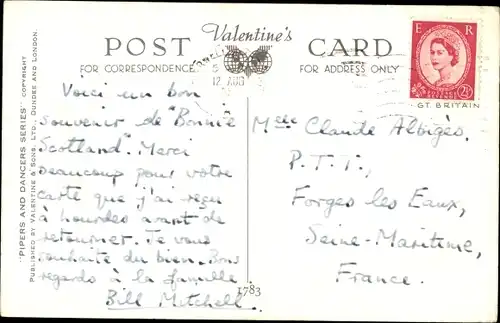 POST Valentine's CARD
FOR CORRESPONDENCE FOR ADDRESS ONLY
E R
2½D
GT. BRITAIN
12 AUG
"PIPERS AND DANCERS SERIES" COPYRIGHT
PUBLISHED BY VALENTINE & SONS, LTD., DUNDEE AND LONDON.
Voici un bon
souvenir de "Bonnie
Scotland". Merci
beaucoup pour votre
carte que j'ai reçu
à Lourdes avant de
retourner. Je vous
souhaite du bien. Bons
regards à la famille
Bill Mitchell.
1783
Mlle Claude Albigès.
P.T.T.,
Forges les Eaux,
Seine-Maritime,
France.